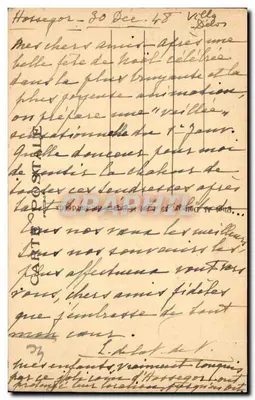 Hossegor - 30 Dec. 48 Villa
Delos
Mes chers amis - après une
belle fête de Noël célébrée
dans la plus bruyante et la
plus joyeuse animation,
on prépare une "veillée"
sensationnelle du 1er Janv.
Quelle douceur pour moi
de sentir la chaleur de
toutes ces tendresses après
tant
Tous nos vœux les meilleurs
Tous nos souvenirs les
plus affectueux vont vers
vous, chers amis fidèles
que j'embrasse de tout
mon cœur.
mes enfants, vraiment conquis
par ce joli coin d'Hossegor, ont
CARTE POSTALE